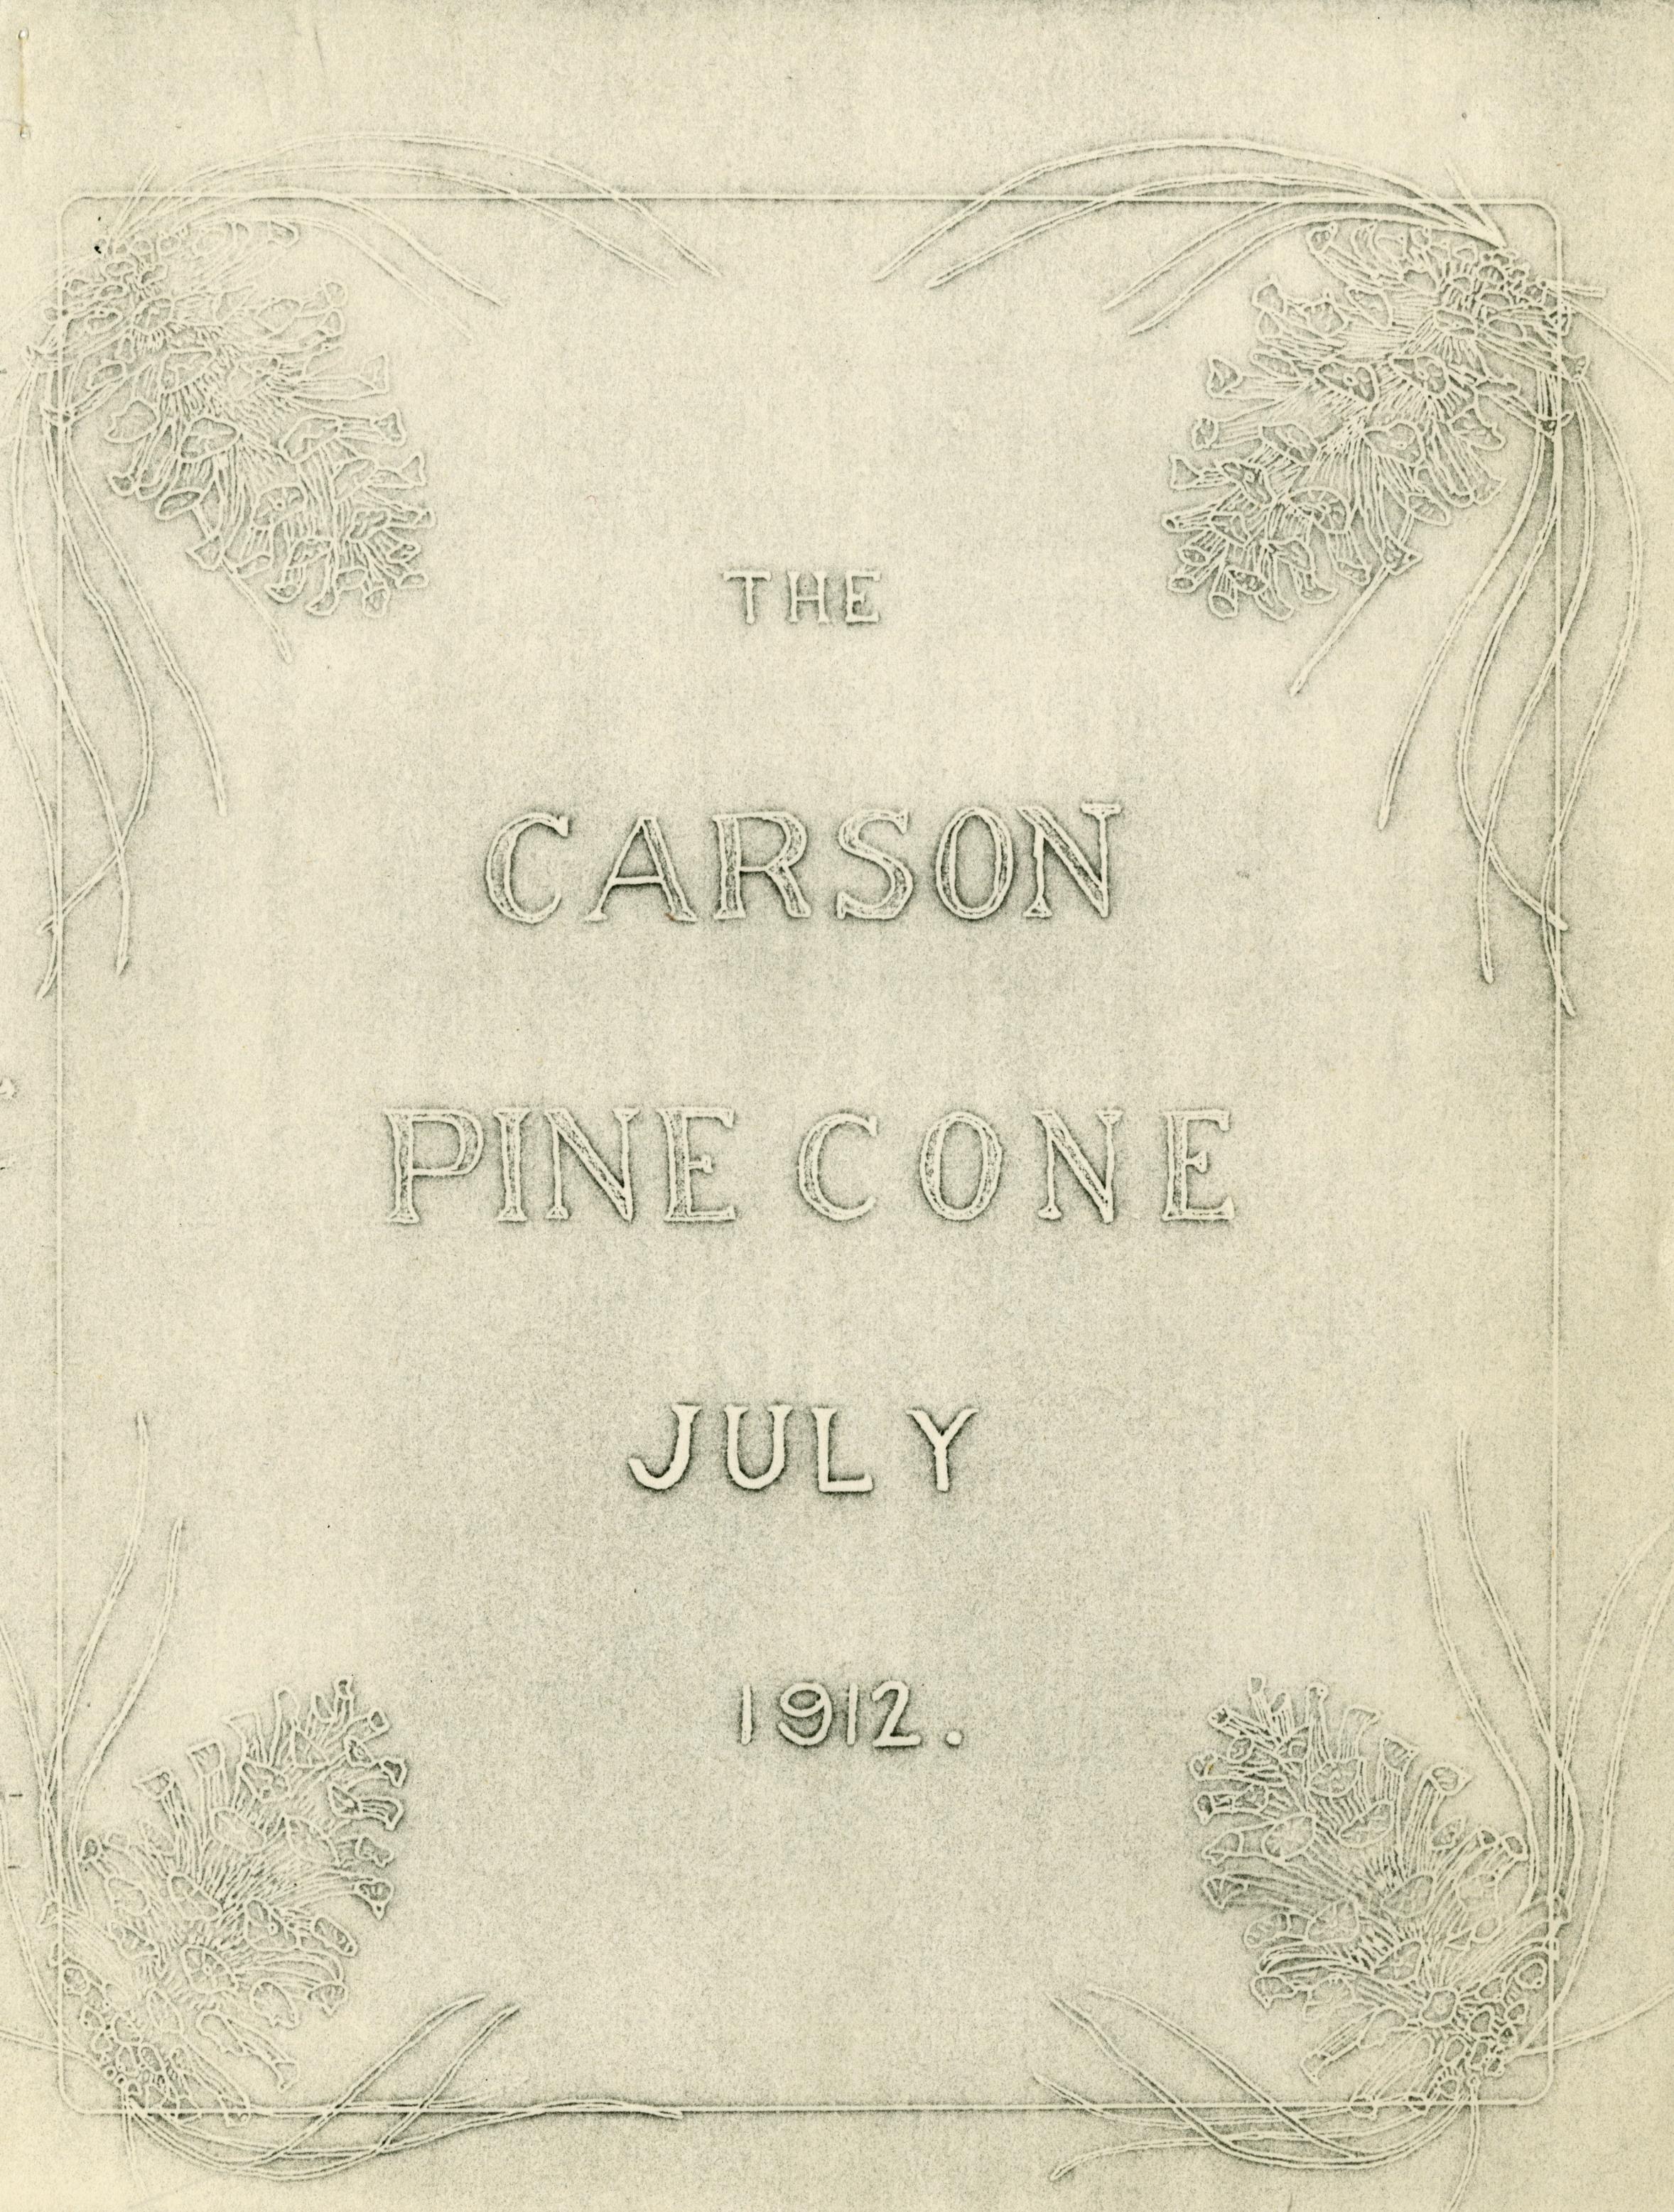 THE
CARSON
PINE CONE
JULY
1912.